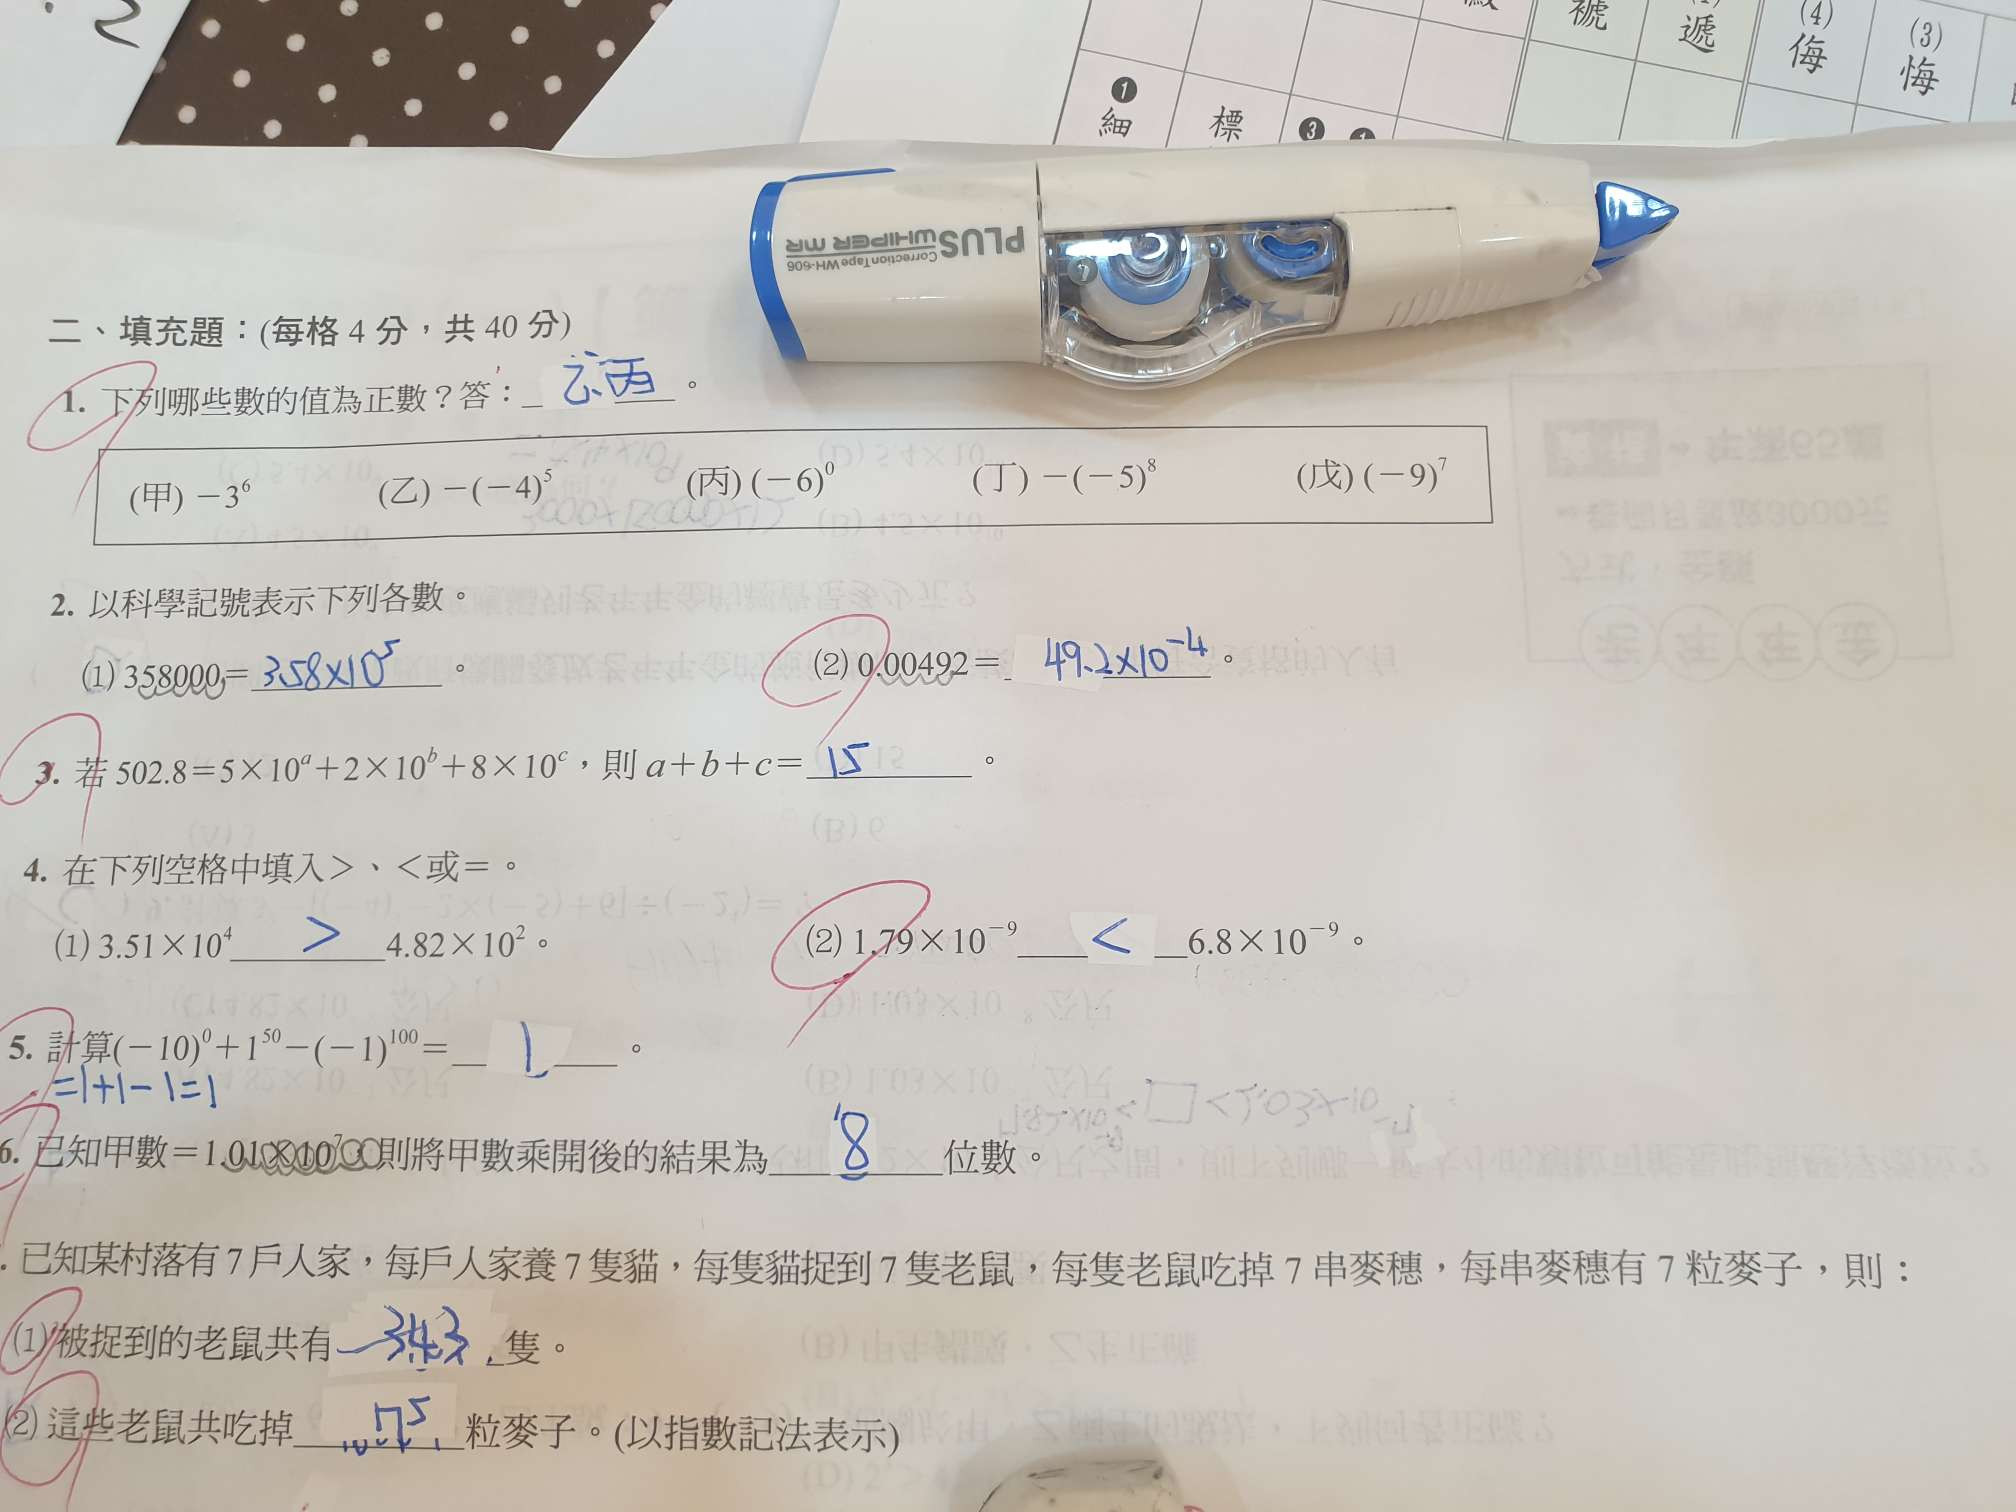 (1)
號
遞
(4)
侮
(3)
悔
❶
細
標
❸
❶
PLUS
WHIPER MR
Correction Tape WH-606
二、填充題:(每格 4 分,共 40 分)
1. 下列哪些數的值為正數?答: 乙、丙 。
(甲) −3⁶ (乙) −(−4)⁵ (丙) (−6)⁰ (丁) −(−5)⁸ (戊) (−9)⁷
2. 以科學記號表示下列各數。
(1) 358000= 3.58×10⁵ 。 (2) 0.00492= 49.2×10⁻⁴ 。
3. 若 502.8=5×10ᵃ+2×10ᵇ+8×10ᶜ,則 a+b+c= 15 。
4. 在下列空格中填入>、<或=。
(1) 3.51×10⁴ > 4.82×10² 。 (2) 1.79×10⁻⁹ < 6.8×10⁻⁹ 。
5. 計算(−10)⁰+1⁵⁰−(−1)¹⁰⁰= 1 。
=1+1-1=1
6. 已知甲數=1.01×10⁷,則將甲數乘開後的結果為 8 位數。
. 已知某村落有 7 戶人家,每戶人家養 7 隻貓,每隻貓捉到 7 隻老鼠,每隻老鼠吃掉 7 串麥穗,每串麥穗有 7 粒麥子,則:
(1) 被捉到的老鼠共有 343 隻。
(2) 這些老鼠共吃掉 7⁵ 粒麥子。(以指數記法表示)